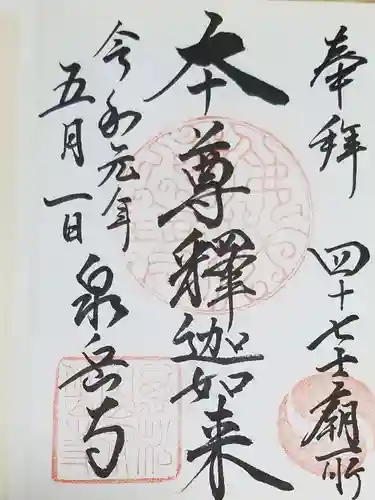 奉拝
四十七士廟所
本尊釋迦如来
令和元年
五月一日
泉岳寺